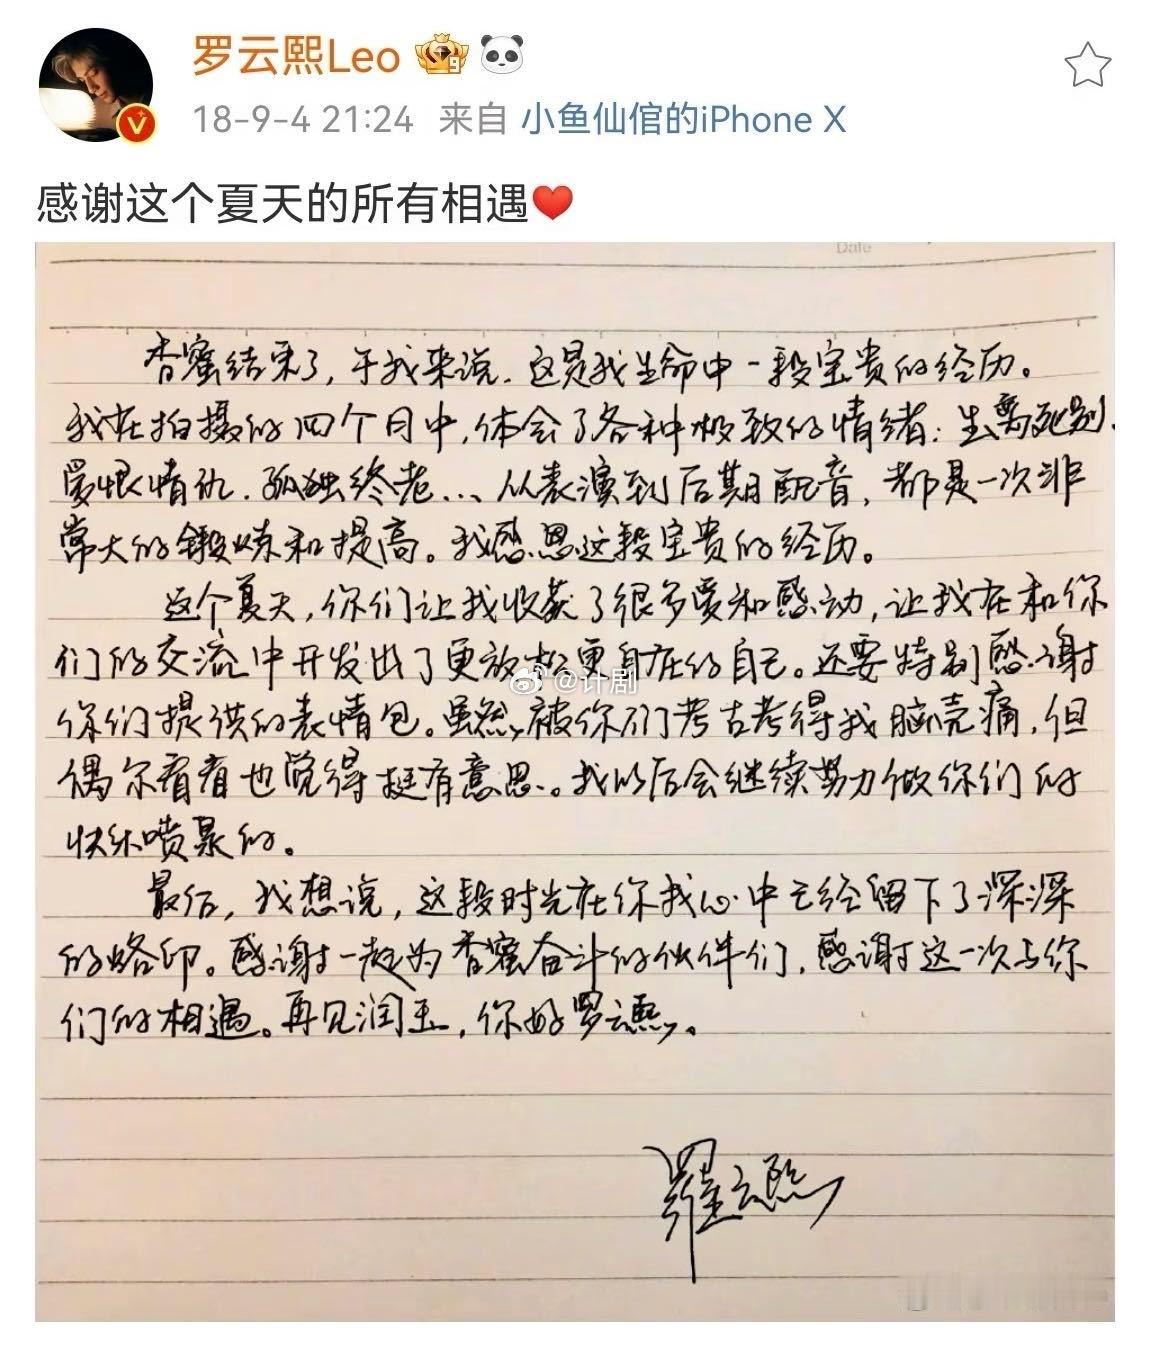 罗云熙Leo
18-9-4 21:24 来自 小鱼仙倌的iPhone X
感谢这个夏天的所有相遇❤️
Date
香蜜结束了，于我来说，这是我生命中一段宝贵的经历。
我在拍摄的四个月中，体会了各种极致的情绪：生离死别、
爱恨情仇、孤独终老…、从表演到后期配音，都是一次非
常大的锻炼和提高。我感恩这段宝贵的经历。
这个夏天，你们让我收获了很多爱和感动，让我在和你
们的交流中开发出了更放松更自在的自己。还要特别感谢
@计剧
你们提供的表情包。虽然，被你们考古考得我脑壳痛，但
偶尔看看也觉得挺有意思。我以后会继续努力做你们的
快乐喷泉的。
最后，我想说，这段时光在你我心中已经留下了深深
的烙印。感谢一起为香蜜奋斗的伙伴们，感谢这一次与你
们的相遇。再见润玉，你好罗云熙。
羅云熙